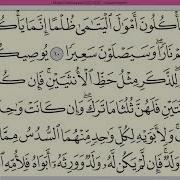 أْكُلُونَ أَمْوَٰلَ ٱلْيَتَٰمَىٰ ظُلْمًا إِنَّمَا يَأْكُ
نَارًا ۖ وَسَيَصْلَوْنَ سَعِيرًا ١٠ يُوصِيكُ
لِلذَّكَرِ مِثْلُ حَظِّ ٱلْأُنثَيَيْنِ ۚ فَإِن كُ
ٱثْنَتَيْنِ فَلَهُنَّ ثُلُثَا مَا تَرَكَ ۖ وَإِن كَانَتْ وَٰحِدَ
وَلِأَبَوَيْهِ لِكُلِّ وَٰحِدٍ مِّنْهُمَا ٱلسُّدُسُ مِمَّ
وَلَدٌ ۚ فَإِن لَّمْ يَكُن لَّهُۥ وَلَدٌ وَوَرِثَهُۥٓ أَبَوَاهُ فَلِأُمِّهِ